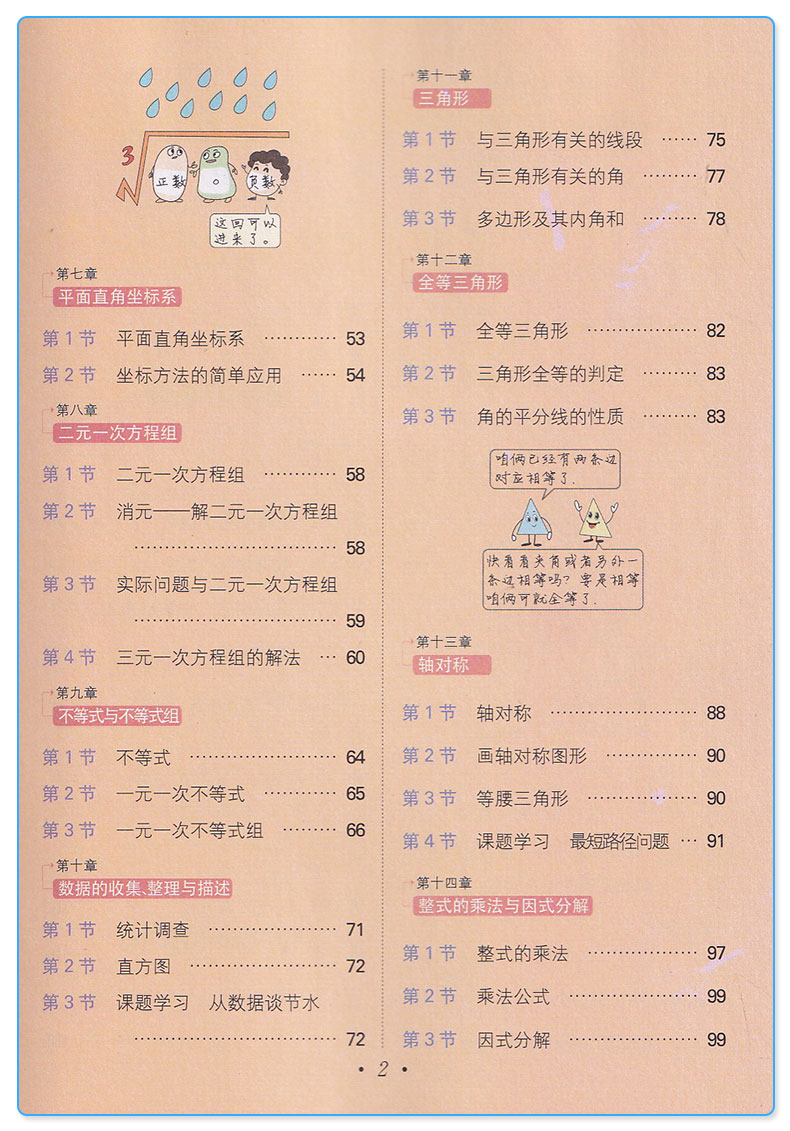 3
正数
0
负数
这回可以
进来了。
第七章
平面直角坐标系
第1节 平面直角坐标系 ………… 53
第2节 坐标方法的简单应用 …… 54
第八章
二元一次方程组
第1节 二元一次方程组 ………… 58
第2节 消元——解二元一次方程组
…………………………… 58
第3节 实际问题与二元一次方程组
…………………………… 59
第4节 三元一次方程组的解法 … 60
第九章
不等式与不等式组
第1节 不等式 …………………… 64
第2节 一元一次不等式 ………… 65
第3节 一元一次不等式组 ……… 66
第十章
数据的收集、整理与描述
第1节 统计调查 ………………… 71
第2节 直方图 …………………… 72
第3节 课题学习 从数据谈节水
…………………………… 72
第十一章
三角形
第1节 与三角形有关的线段 …… 75
第2节 与三角形有关的角 ……… 77
第3节 多边形及其内角和 ……… 78
第十二章
全等三角形
第1节 全等三角形 ……………… 82
第2节 三角形全等的判定 ……… 83
第3节 角的平分线的性质 ……… 83
咱俩已经有两条边
对应相等了.
快看看夹角或者另外一
条边相等吗?要是相等
咱俩可就全等了.
第十三章
轴对称
第1节 轴对称 …………………… 88
第2节 画轴对称图形 …………… 90
第3节 等腰三角形 ……………… 90
第4节 课题学习 最短路径问题 … 91
第十四章
整式的乘法与因式分解
第1节 整式的乘法 ……………… 97
第2节 乘法公式 ………………… 99
第3节 因式分解 ………………… 99
• 2 •